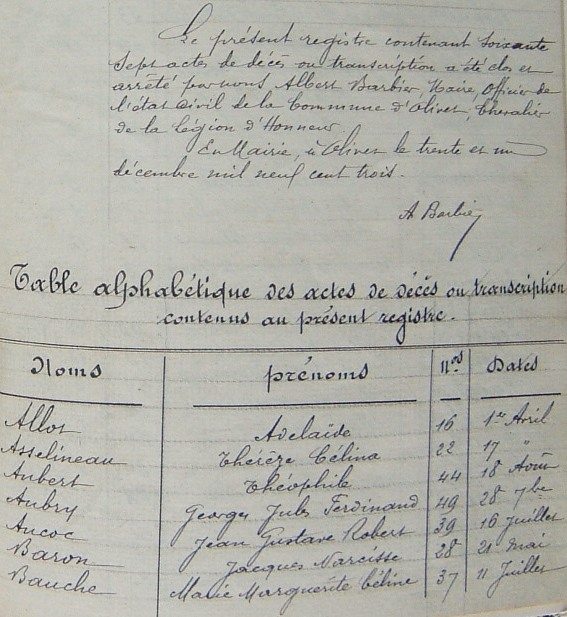 Le présent registre contenant soixante
sept actes de décès ou transcription a été clos et
arrêté par nous Albert Barbier, Maire, Officier de
l'état Civil de la Commune d'Olivet, Chevalier
de la légion d'Honneur
En Mairie, à Olivet le trente et un
décembre mil neuf cent trois.
A Barbier
Table alphabétique des actes de décès ou transcription
contenus au présent registre.
Noms prénoms nos Dates
Allot Adelaïde 16 1er Avril
Asselineau Thérèze Célina 22 17 "
Aubert Théophile 44 18 Août
Aubry Georges Jules Ferdinand 49 28 7bre
Aucoc Jean Gustave Robert 39 16 Juillet
Baron Jacques Narcisse 28 21 Mai
Bauche Marie Marguerite Céline 37 11 Juillet